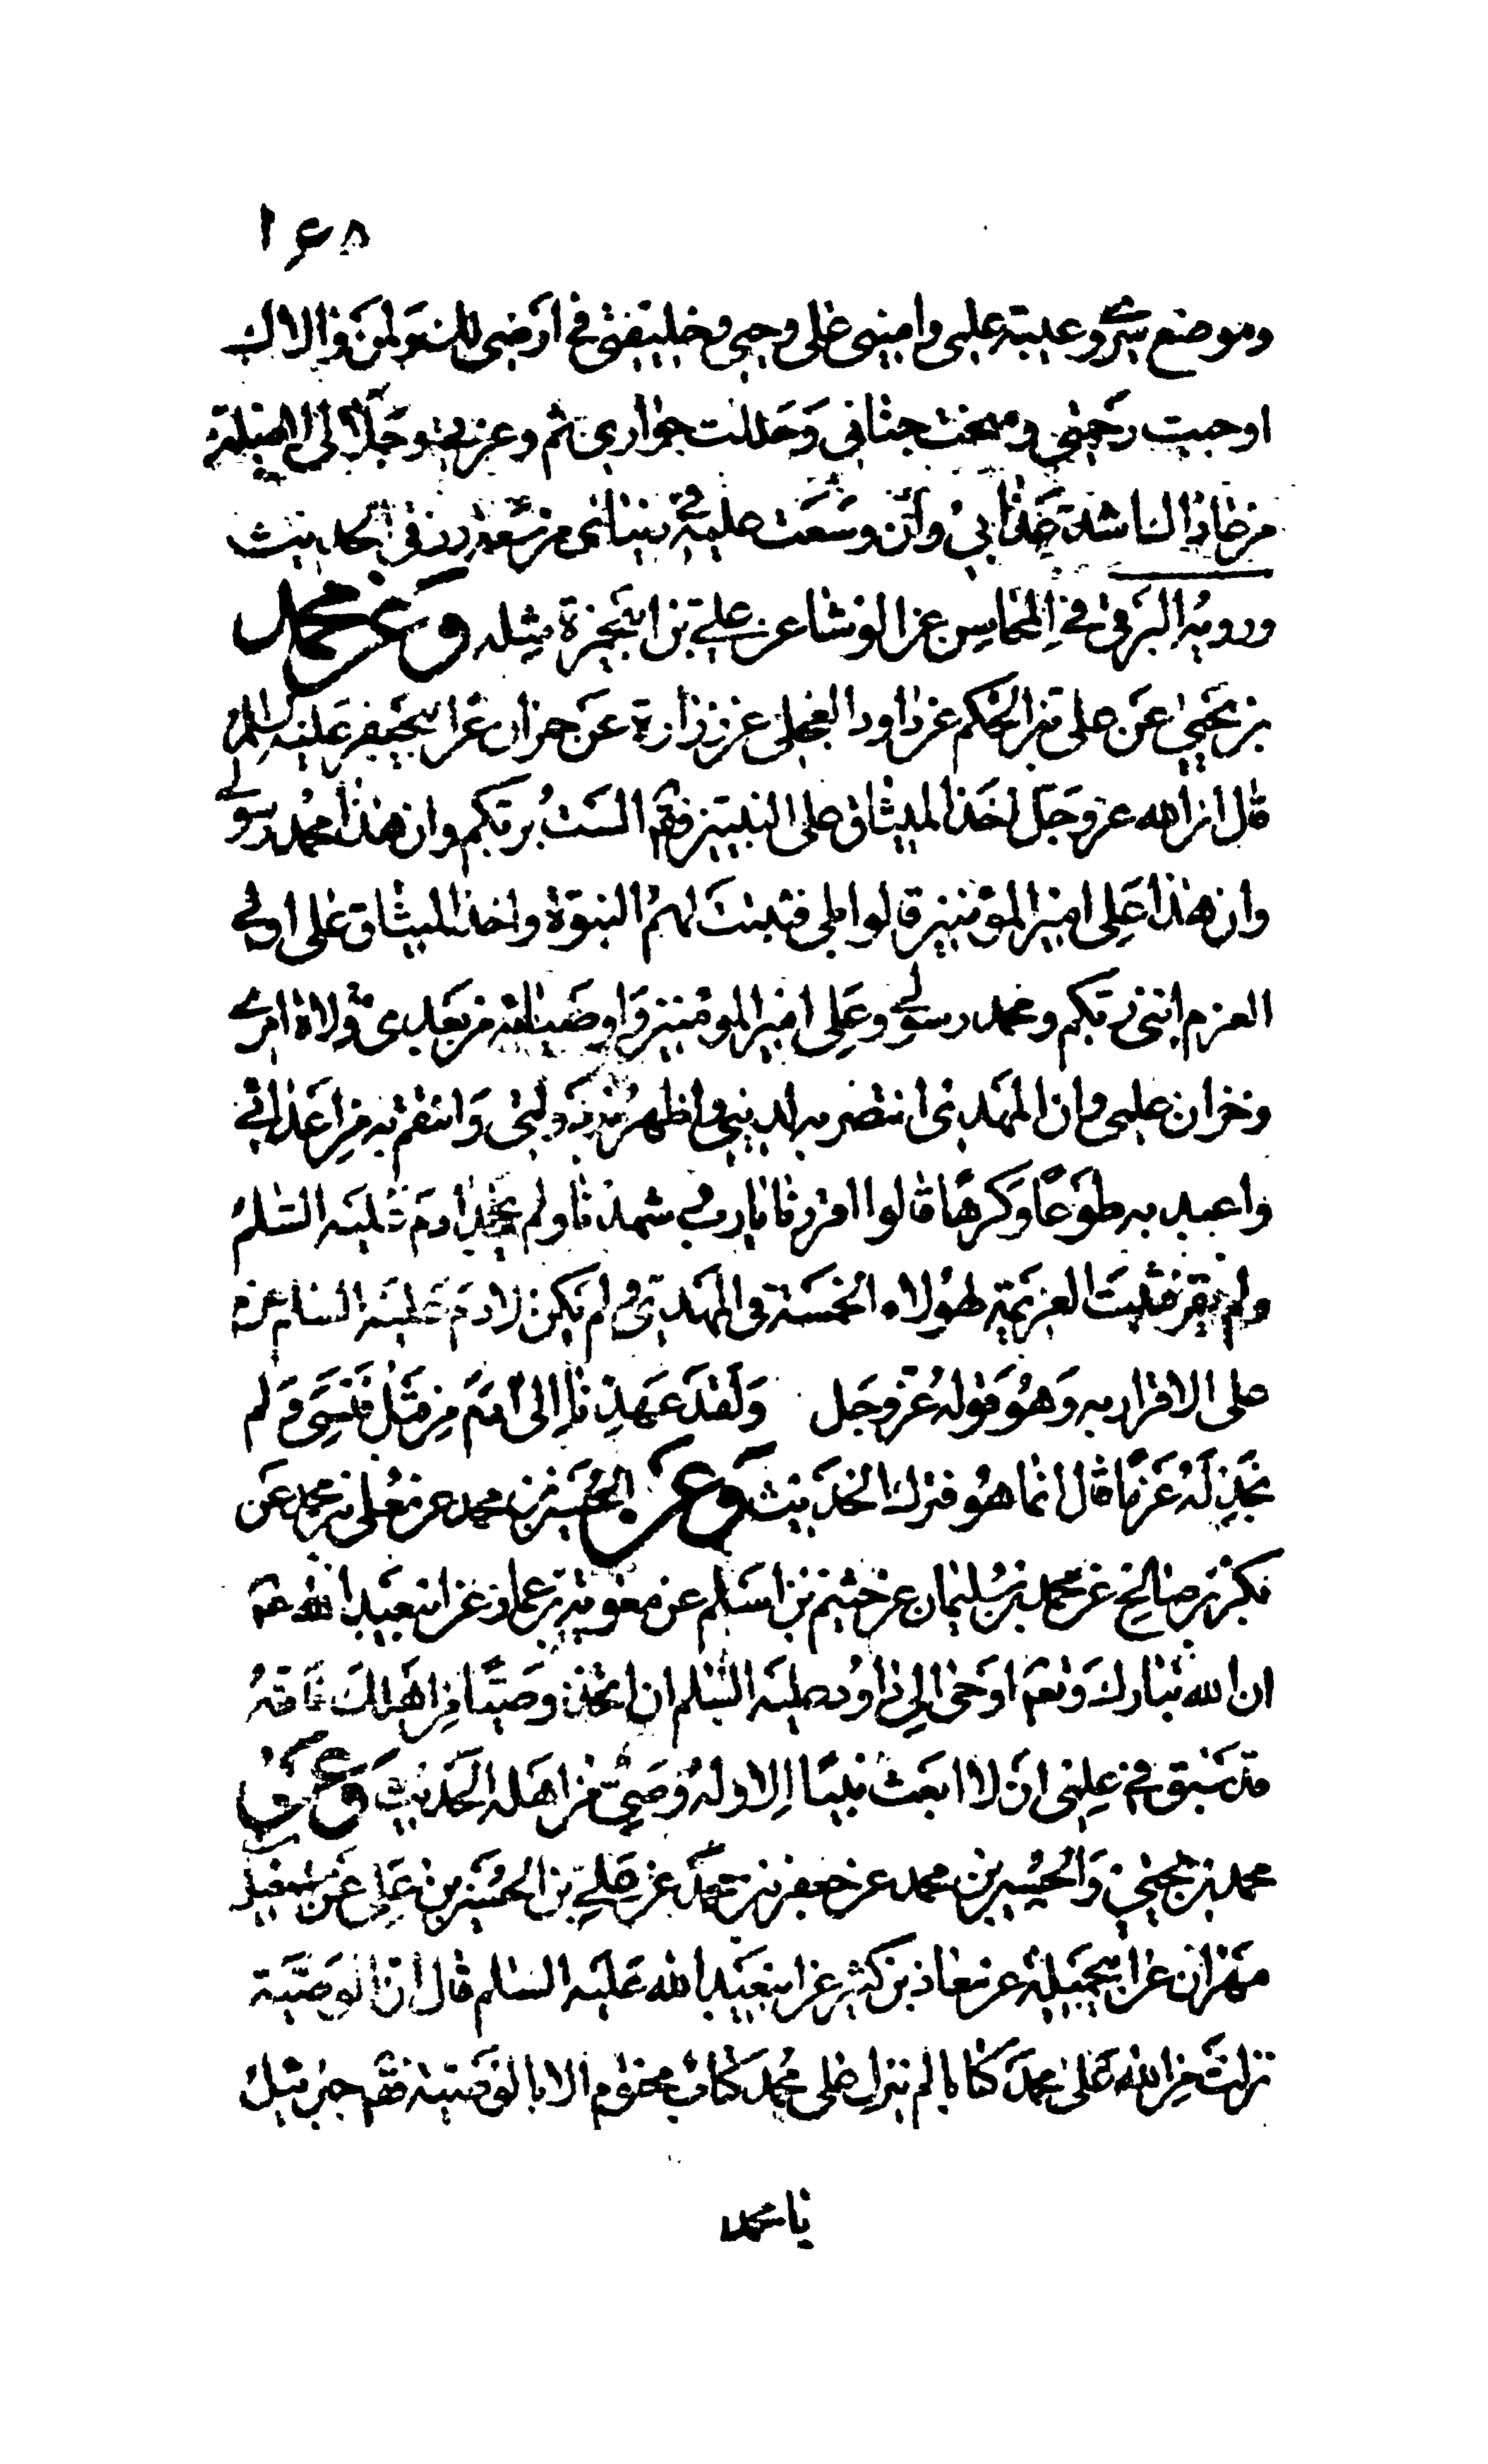 ١٤٨
وموضع سري وعيبة علمي واميني على وحيي وخليفتي في ارضي لمن تولى والاك
اوجبت رحمتي ومنحت جناني وحللت جواري ثم وعزتي وجلالي لاصلين
من عاداك اشد عذابي وان وسعت عليهم في دنياي من سعة رزقي الحديث
ورويه البرقي في المحاسن عن الوشا عن علي بن ابي حمزة مثله وعن محمد
بن يحيى عن علي بن الحكم عن داود العجلي عن زرارة عن حمران عن ابي جعفر عليه السلم
قال ان الله عز وجل اخذ الميثاق على النبيين فقم الست بربكم وان هذا محمد رسولي
وان هذا علي امير المؤمنين قالوا بلى فثبتت لهم النبوة واخذ الميثاق على اولي
العزم انني ربكم ومحمد رسولي وعلي امير المومنين واوصيائه من بعدي ولاة امري
وخزان علمي وان المهدي انتصر به لديني واظهر به دولتي وانتقم به من اعدائي
واعبد به طوعا وكرها قالوا اقررنا يا رب وشهدنا ولم يجحد ادم عليه السلم
ولم يقر فثبتت العزيمة لهؤلاء الخمسة في المهدي ولم يكن لادم عليه السلم عزم
على الاقرار به وهو قوله عز وجل ولقد عهدنا الى آدم من قبل فنسي ولم
نجد له عزما قال انما هو فترك الحديث وعن الحسين بن محمد عن معلى بن محمد عن
بكر بن صالح عن محمد بن سليمان عن خيثم بن اسلم عن معوية بن عمار عن ابيعبد الله عم
ان الله تبارك وتعم اوحى الى داود عليه السلم ان اتخذ وصيا من اهلك فانه
قد سبق في علمي ان لا ابعث نبيا الا وله وصي من اهله الحديث وعن
محمد بن يحيى والحسين بن محمد عن جعفر بن محمد عن علي بن الحسين بن علي عن اسمعيل
مهران عن ابي جميلة عن معاذ بن كثير عن ابيعبد الله عليه السلم قال ان الوصية
نزلت من الله على محمد كتابا لم ينزل على محمد كتاب مختوم الا بالوصية فقم جبرئيل
يا محمد